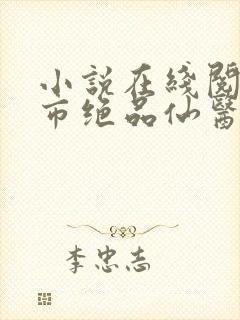 小説在綫閱
市绝品仙醫
李忠志